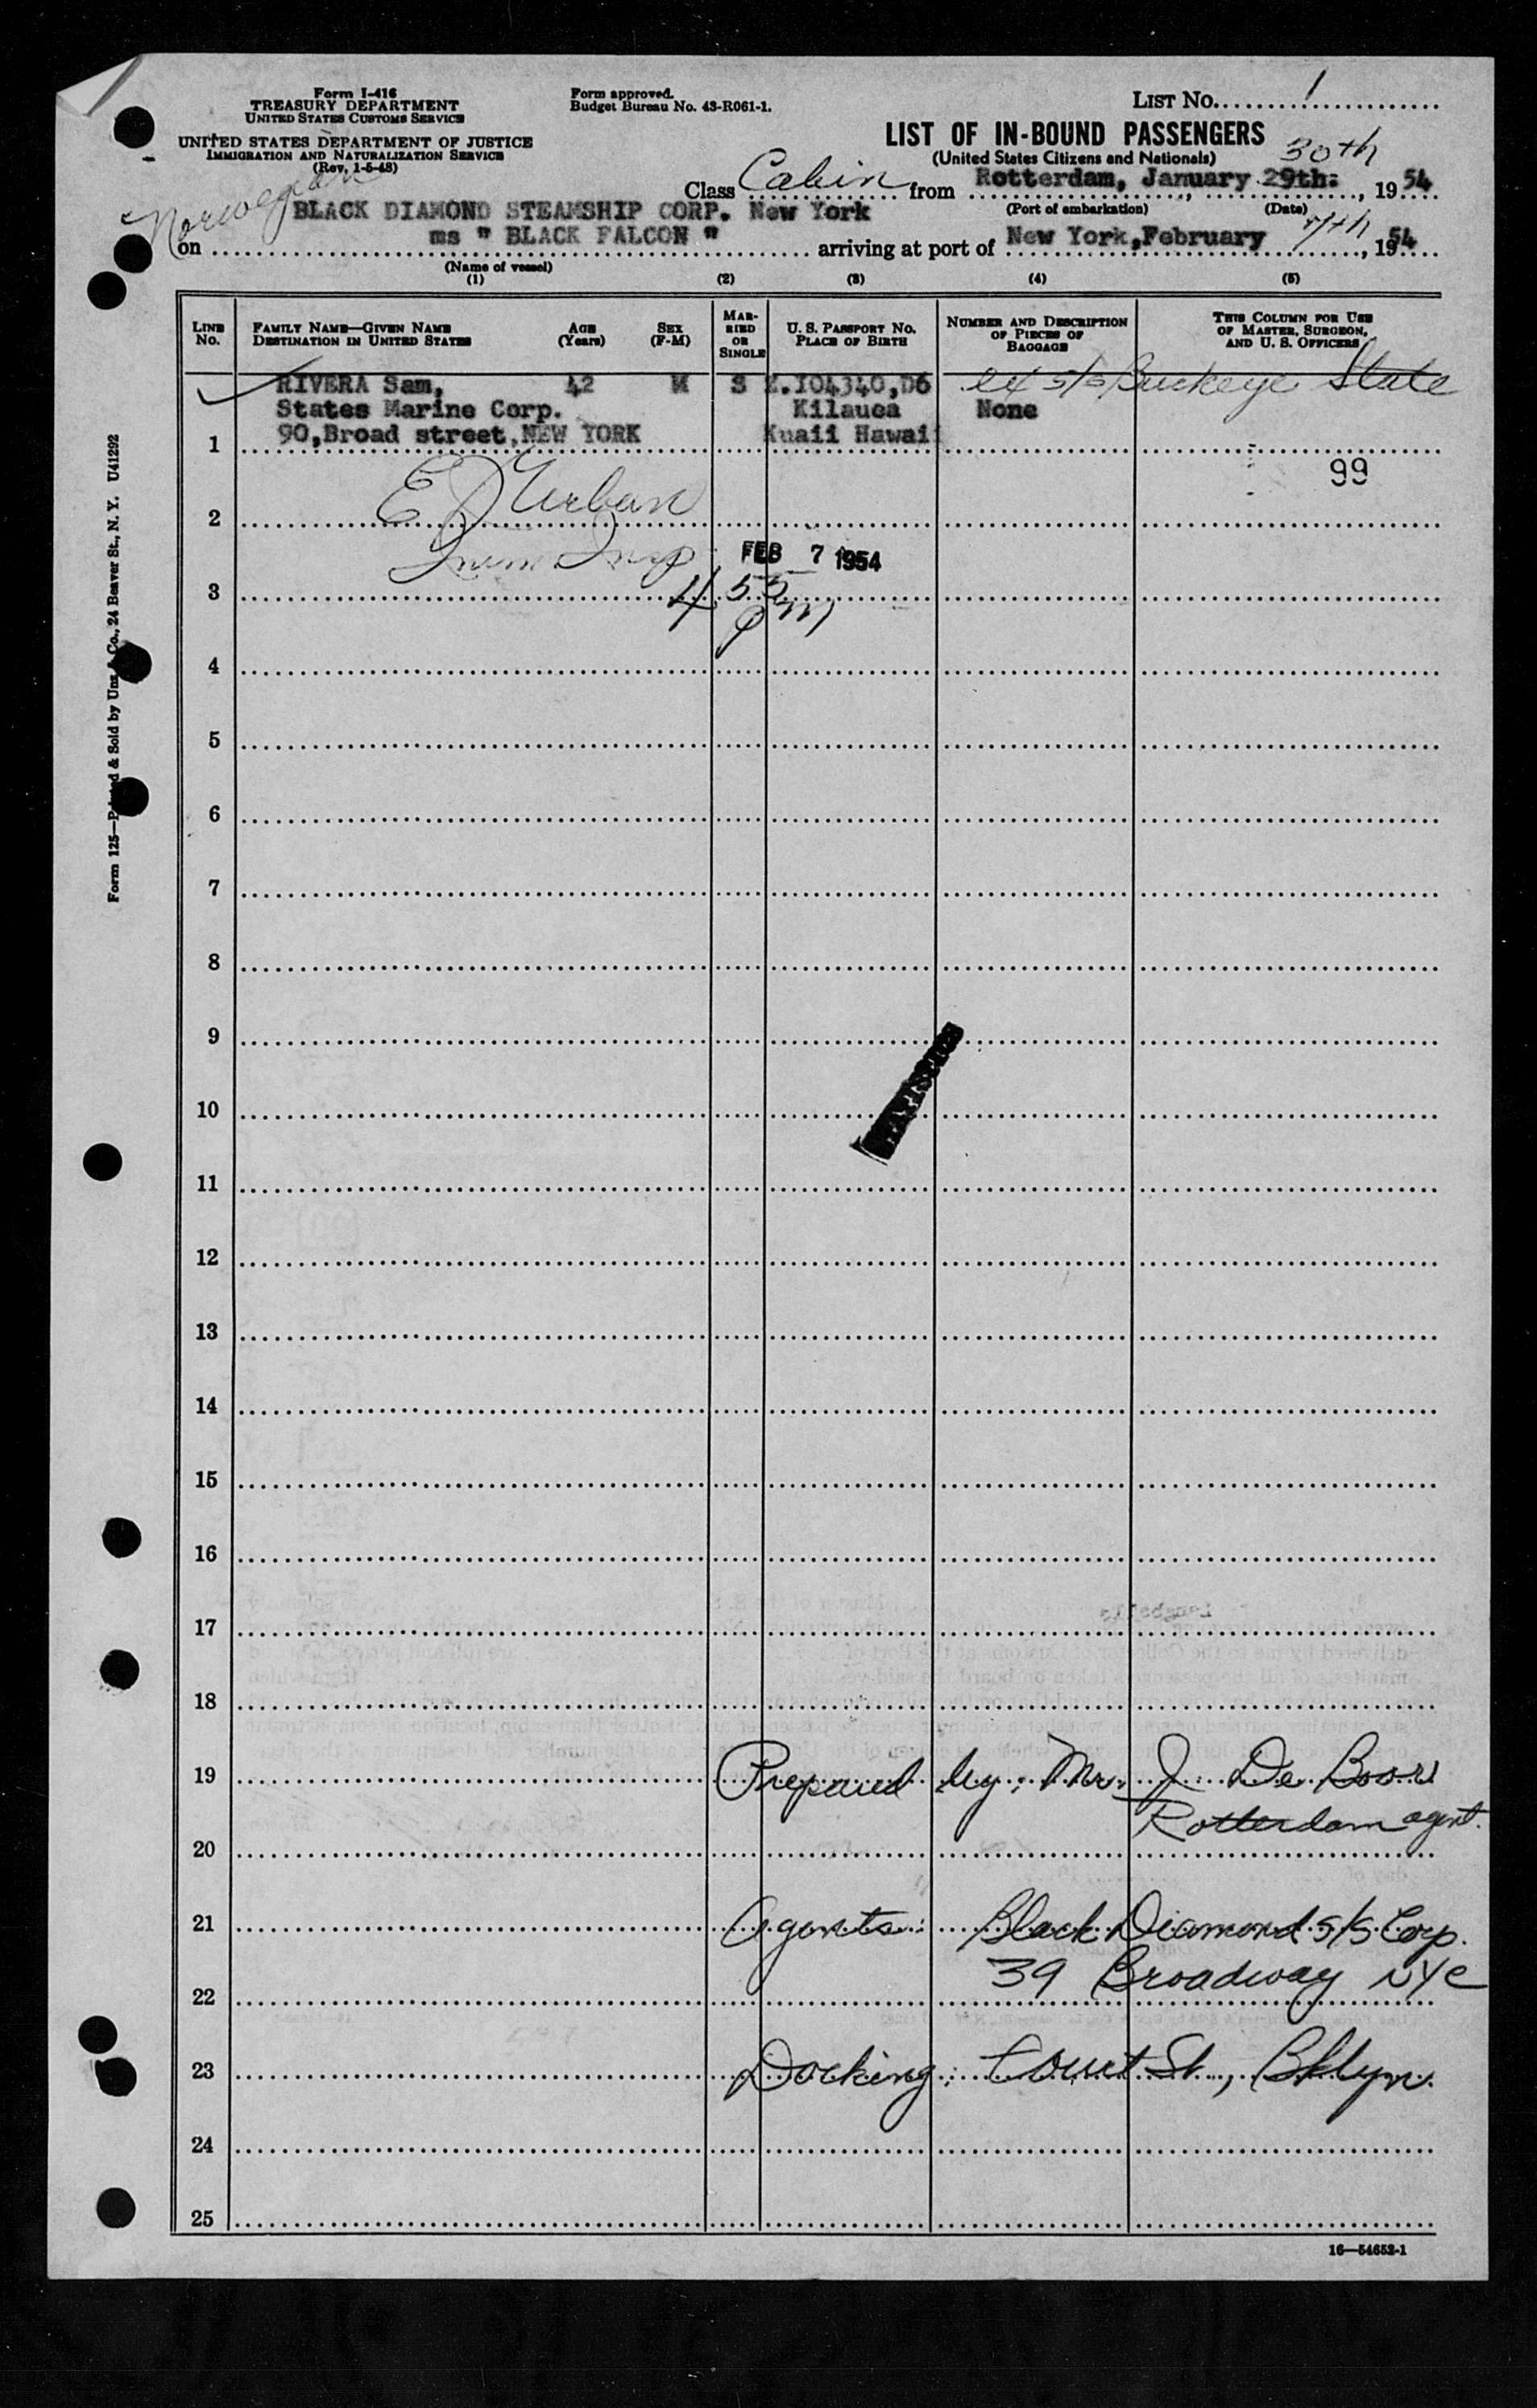 Form I-416
TREASURY DEPARTMENT
UNITED STATES CUSTOMS SERVICE
UNITED STATES DEPARTMENT OF JUSTICE
IMMIGRATION AND NATURALIZATION SERVICE
(Rev. 1-5-48)
Form approved.
Budget Bureau No. 43-R061-1.
LIST No. 1
LIST OF IN-BOUND PASSENGERS
(United States Citizens and Nationals)
30th
Class Cabin from Rotterdam, January 29th: , 1954
(Port of embarkation) (Date)
Norwegian
BLACK DIAMOND STEAMSHIP CORP. New York
on ms " BLACK FALCON " arriving at port of New York, February 7th, 1954
(Name of vessel)
(1) (2) (3) (4) (5)
LINE No.
FAMILY NAME—GIVEN NAME
DESTINATION IN UNITED STATES
AGE (Years)
SEX (F-M)
MARRIED OR SINGLE
U. S. PASSPORT NO.
PLACE OF BIRTH
NUMBER AND DESCRIPTION OF PIECES OF BAGGAGE
THIS COLUMN FOR USE OF MASTER, SURGEON, AND U. S. OFFICERS
RIVERA Sam, 42 M S Z.104340,D6 ex s/s Buckeye State
States Marine Corp. Kilauea None
1 90,Broad street,NEW YORK Kuaii Hawaii
99
E J Urban
2
Imm Insp FEB 7 1954
3 4 55
pm
4
5
6
7
8
9
10
11
12
13
14
15
16
17
18
19 Prepared by: Mr. J. De Boer
Rotterdam agent.
20
21 Agents: Black Diamond s/s Corp.
39 Broadway NYC
22
23 Docking: Court St., Bklyn.
24
25
16—54652-1
Form 125—Printed & Sold by Unz & Co., 24 Beaver St., N. Y. U41292